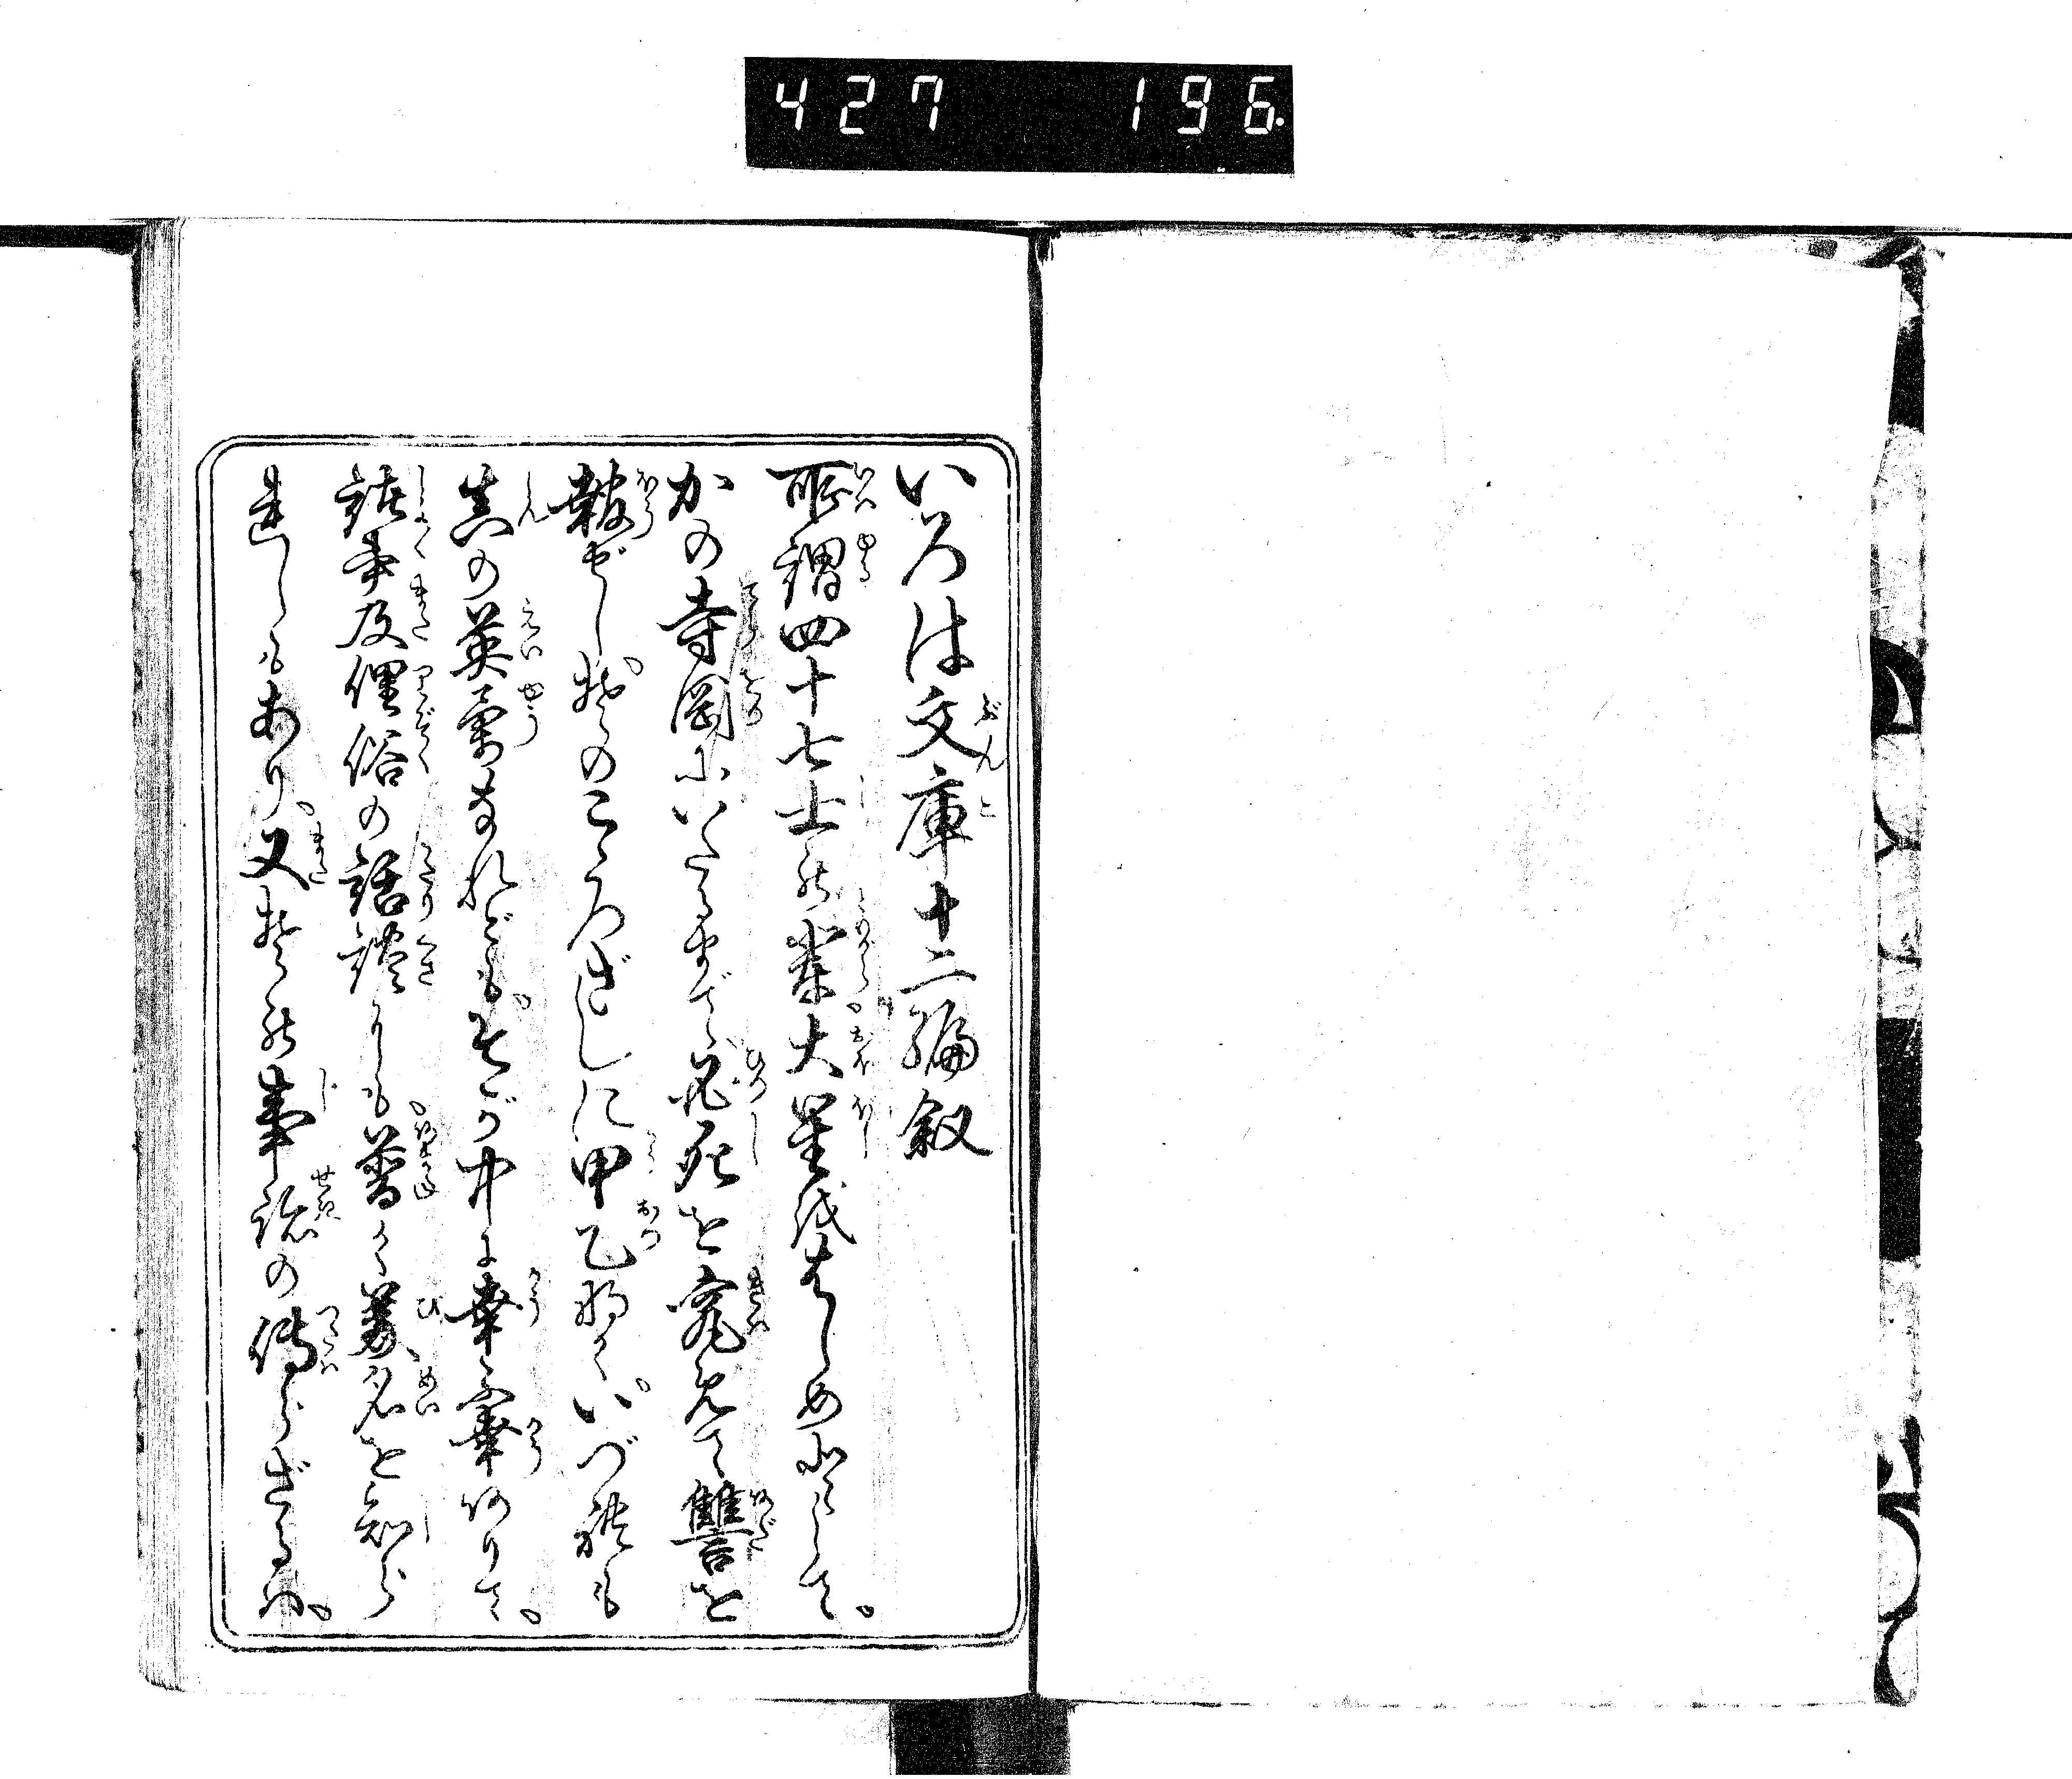 427 196.
いろは文庫十二編叙
所謂四十七士の輩大星をはじめとして。
かの寺岡にいたるまで、必死を究めて讐を
報ぜし、其のこゝろざしに甲乙なく。いづれも
真の英勇なれども。そが中に幸不幸ありて。
誌書及俚俗の話譚にしも。普く美名を知ら
れしもあり。又其の事跡の傳らざるは。